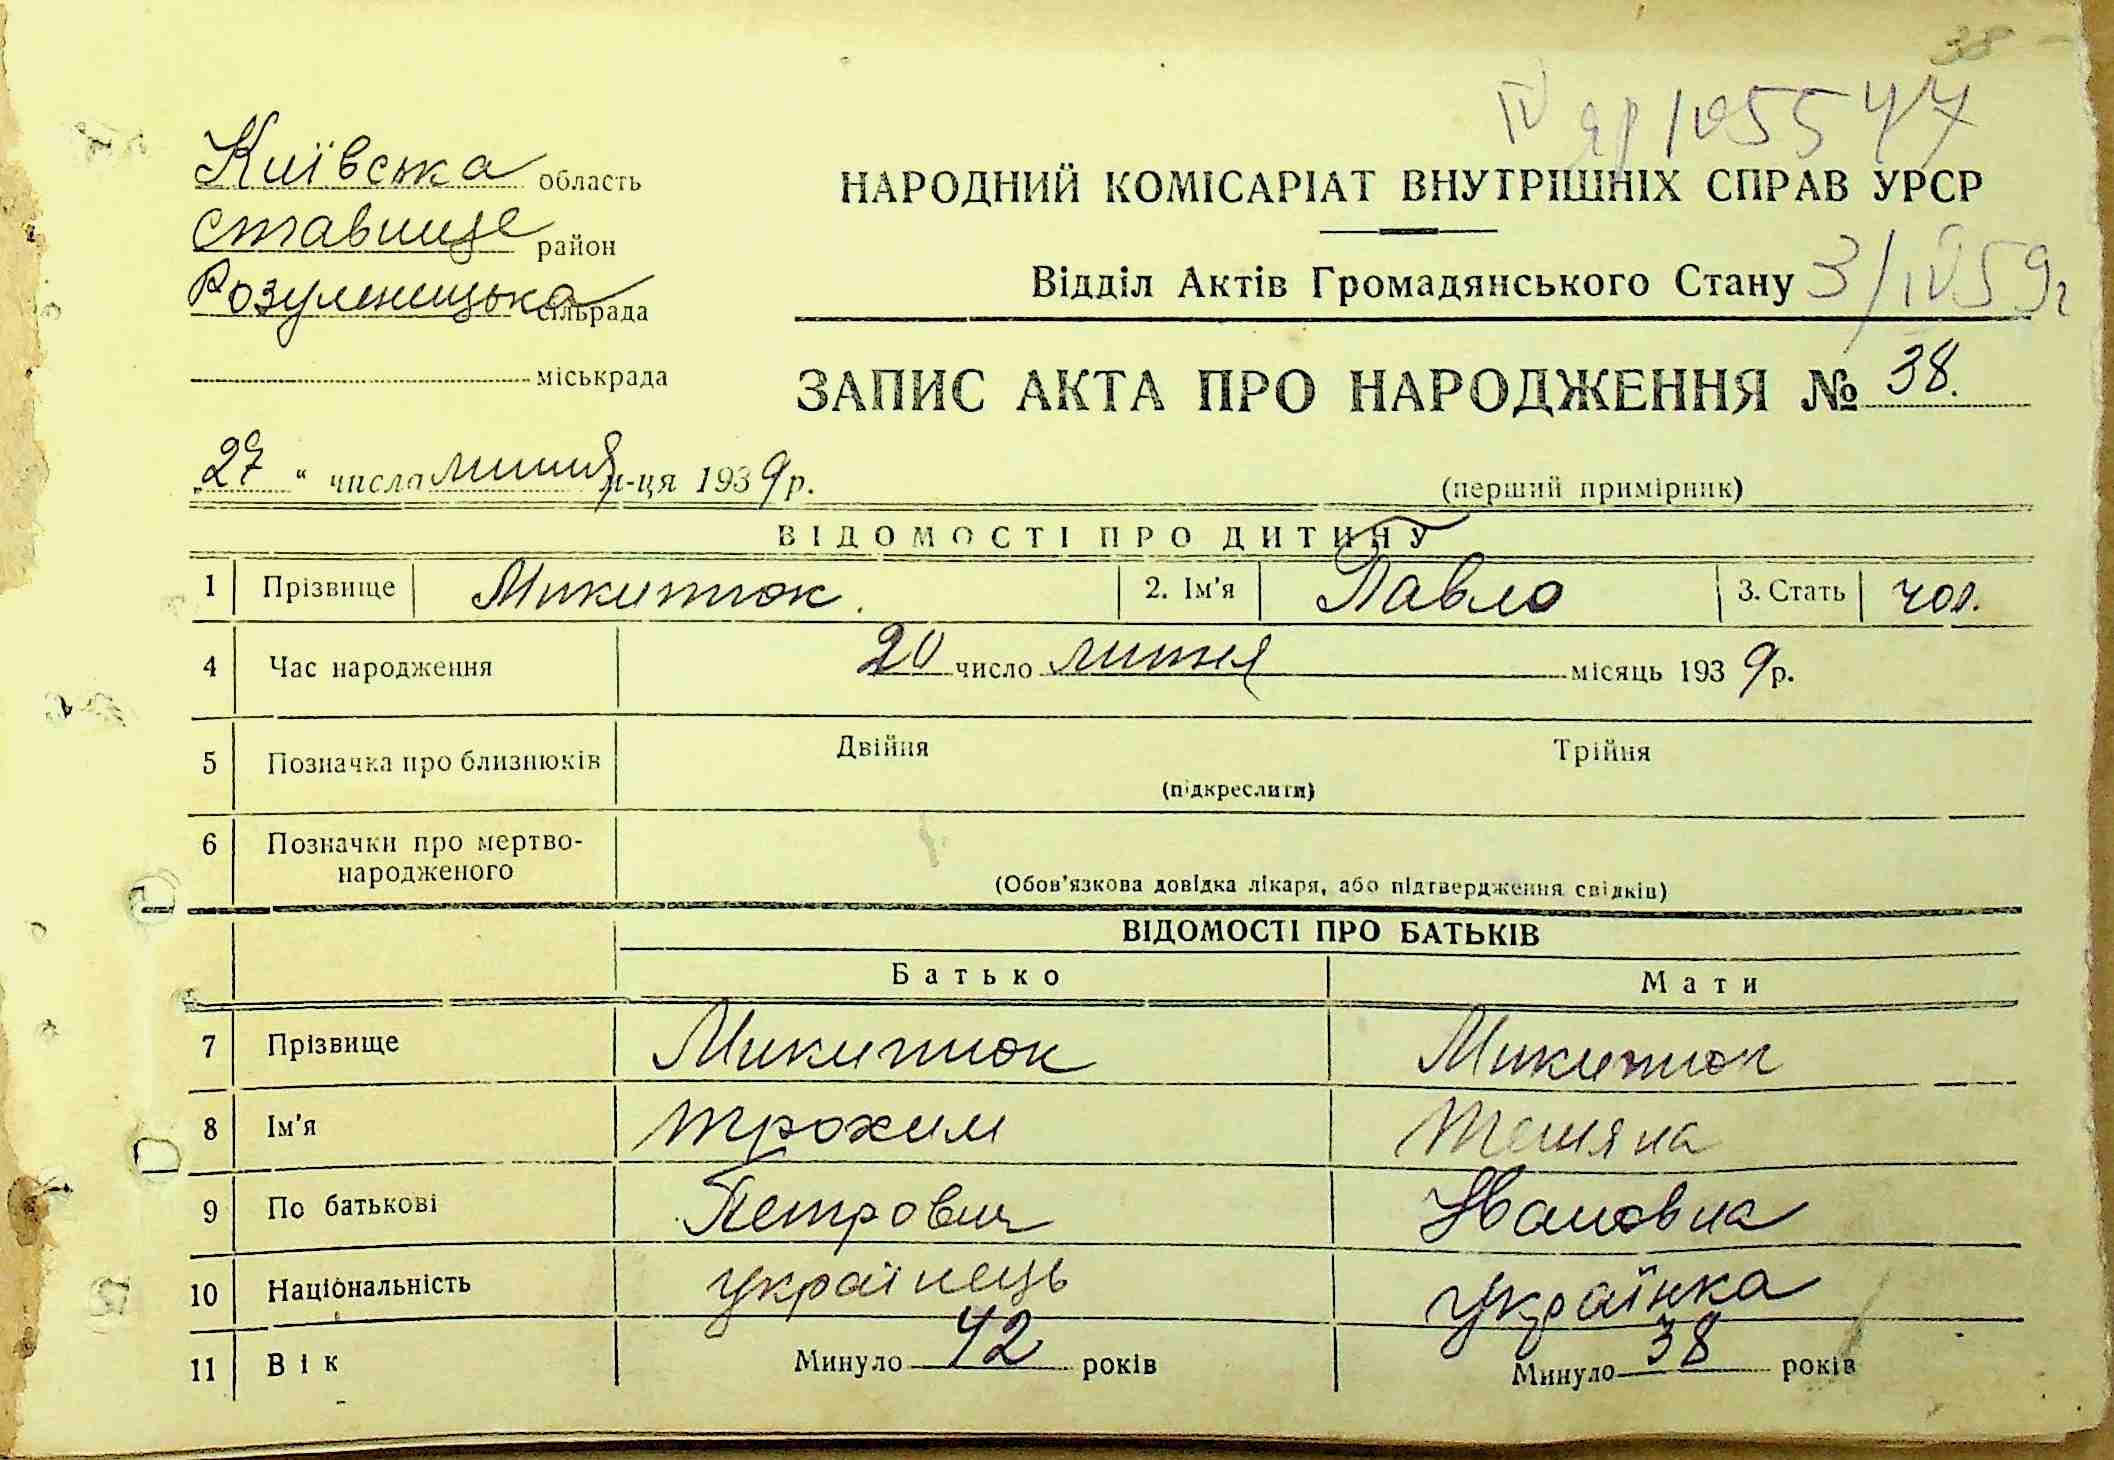 38
IV ЯР 105547
Київська область
Ставище район
Розумницька сільрада
міськрада
НАРОДНИЙ КОМІСАРІАТ ВНУТРІШНІХ СПРАВ УРСР
Відділ Актів Громадянського Стану 3/IV 59 г
ЗАПИС АКТА ПРО НАРОДЖЕННЯ № 38.
„27“ числа липня м-ця 1939 р.
(перший примірник)
ВІДОМОСТІ ПРО ДИТИНУ
1 Прізвище Микитюк. 2. Ім'я Павло 3. Стать чол.
4 Час народження 20 число липня місяць 1939 р.
5 Позначка про близнюків Двійня Трійня
(підкреслити)
6 Позначки про мертво-
народженого
(Обов'язкова довідка лікаря, або підтвердження свідків)
ВІДОМОСТІ ПРО БАТЬКІВ
Батько Мати
7 Прізвище Микитюк Микитюк
8 Ім'я Трохим Тетяна
9 По батькові Петрович Івановна
10 Національність українець українка
11 Вік Минуло 42 років Минуло 38 років